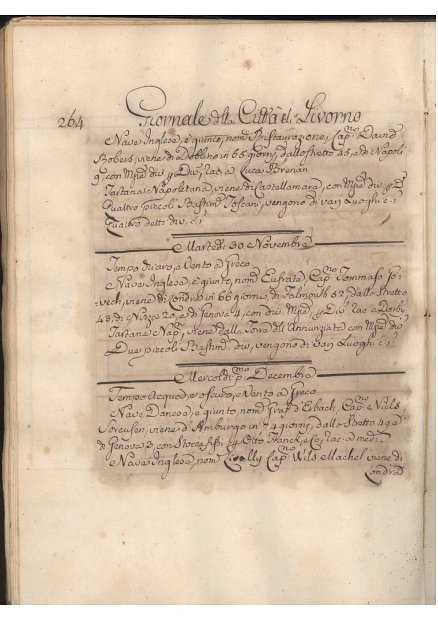 264 Giornale della Città di Livorno
Nave Inglese, è giunto, nom.ᵗᵃ Ristaurazione, Cap.ⁿᵒ David
Robeis, viene di Doblino in 65 giorni, dallo stretto 25, e di Napoli
9, con Mʳᶜᵉ div.ᵉ rac. a Luca Brenan
Tartana Napoletana, viene di Castellamara, con Mʳᶜᵉ div.ᵉ
Quattro piccoli Bastim.ᵗⁱ Toscani, vengono di vari Luoghi c. s.
Quattro detti div. c. s.
Martedì 30 Novembre
Tempo oscuro, e Vento a Greco
Nave Inglese, è giunto, nom.ᵗᵃ Eufrata, Cap.ⁿᵒ Tommaso
viene di Londra in 66 giorni, di Falmouth 52, dallo Stretto
43, di Nizza 20, e di Genova 4, con div. Mʳᶜᵉ
Tartane Nap.ᵉ, viene dalla Torre dell'Annunziata con Mʳᶜᵉ div.ᵉ
Due piccoli Bastim.ᵗⁱ div. vengono di vari Luoghi c. s.
Mercoldì p.ᵐᵒ Decembre
Tempo Acquoso, e oscuro, e Vento a Greco
Nave Danese, è giunto, nom.ᵗᵃ Eibach, Cap.ⁿᵒ Niels
Soreusen, viene d'Amburgo in 74 giorni, dallo Stretto 49 e
di Genova 3, con Otto Franck, e Co, rac. a med.ⁱ
Nave Inglese, nom.ᵗᵃ Cap.ⁿᵒ Wils Machel viene di
Londra